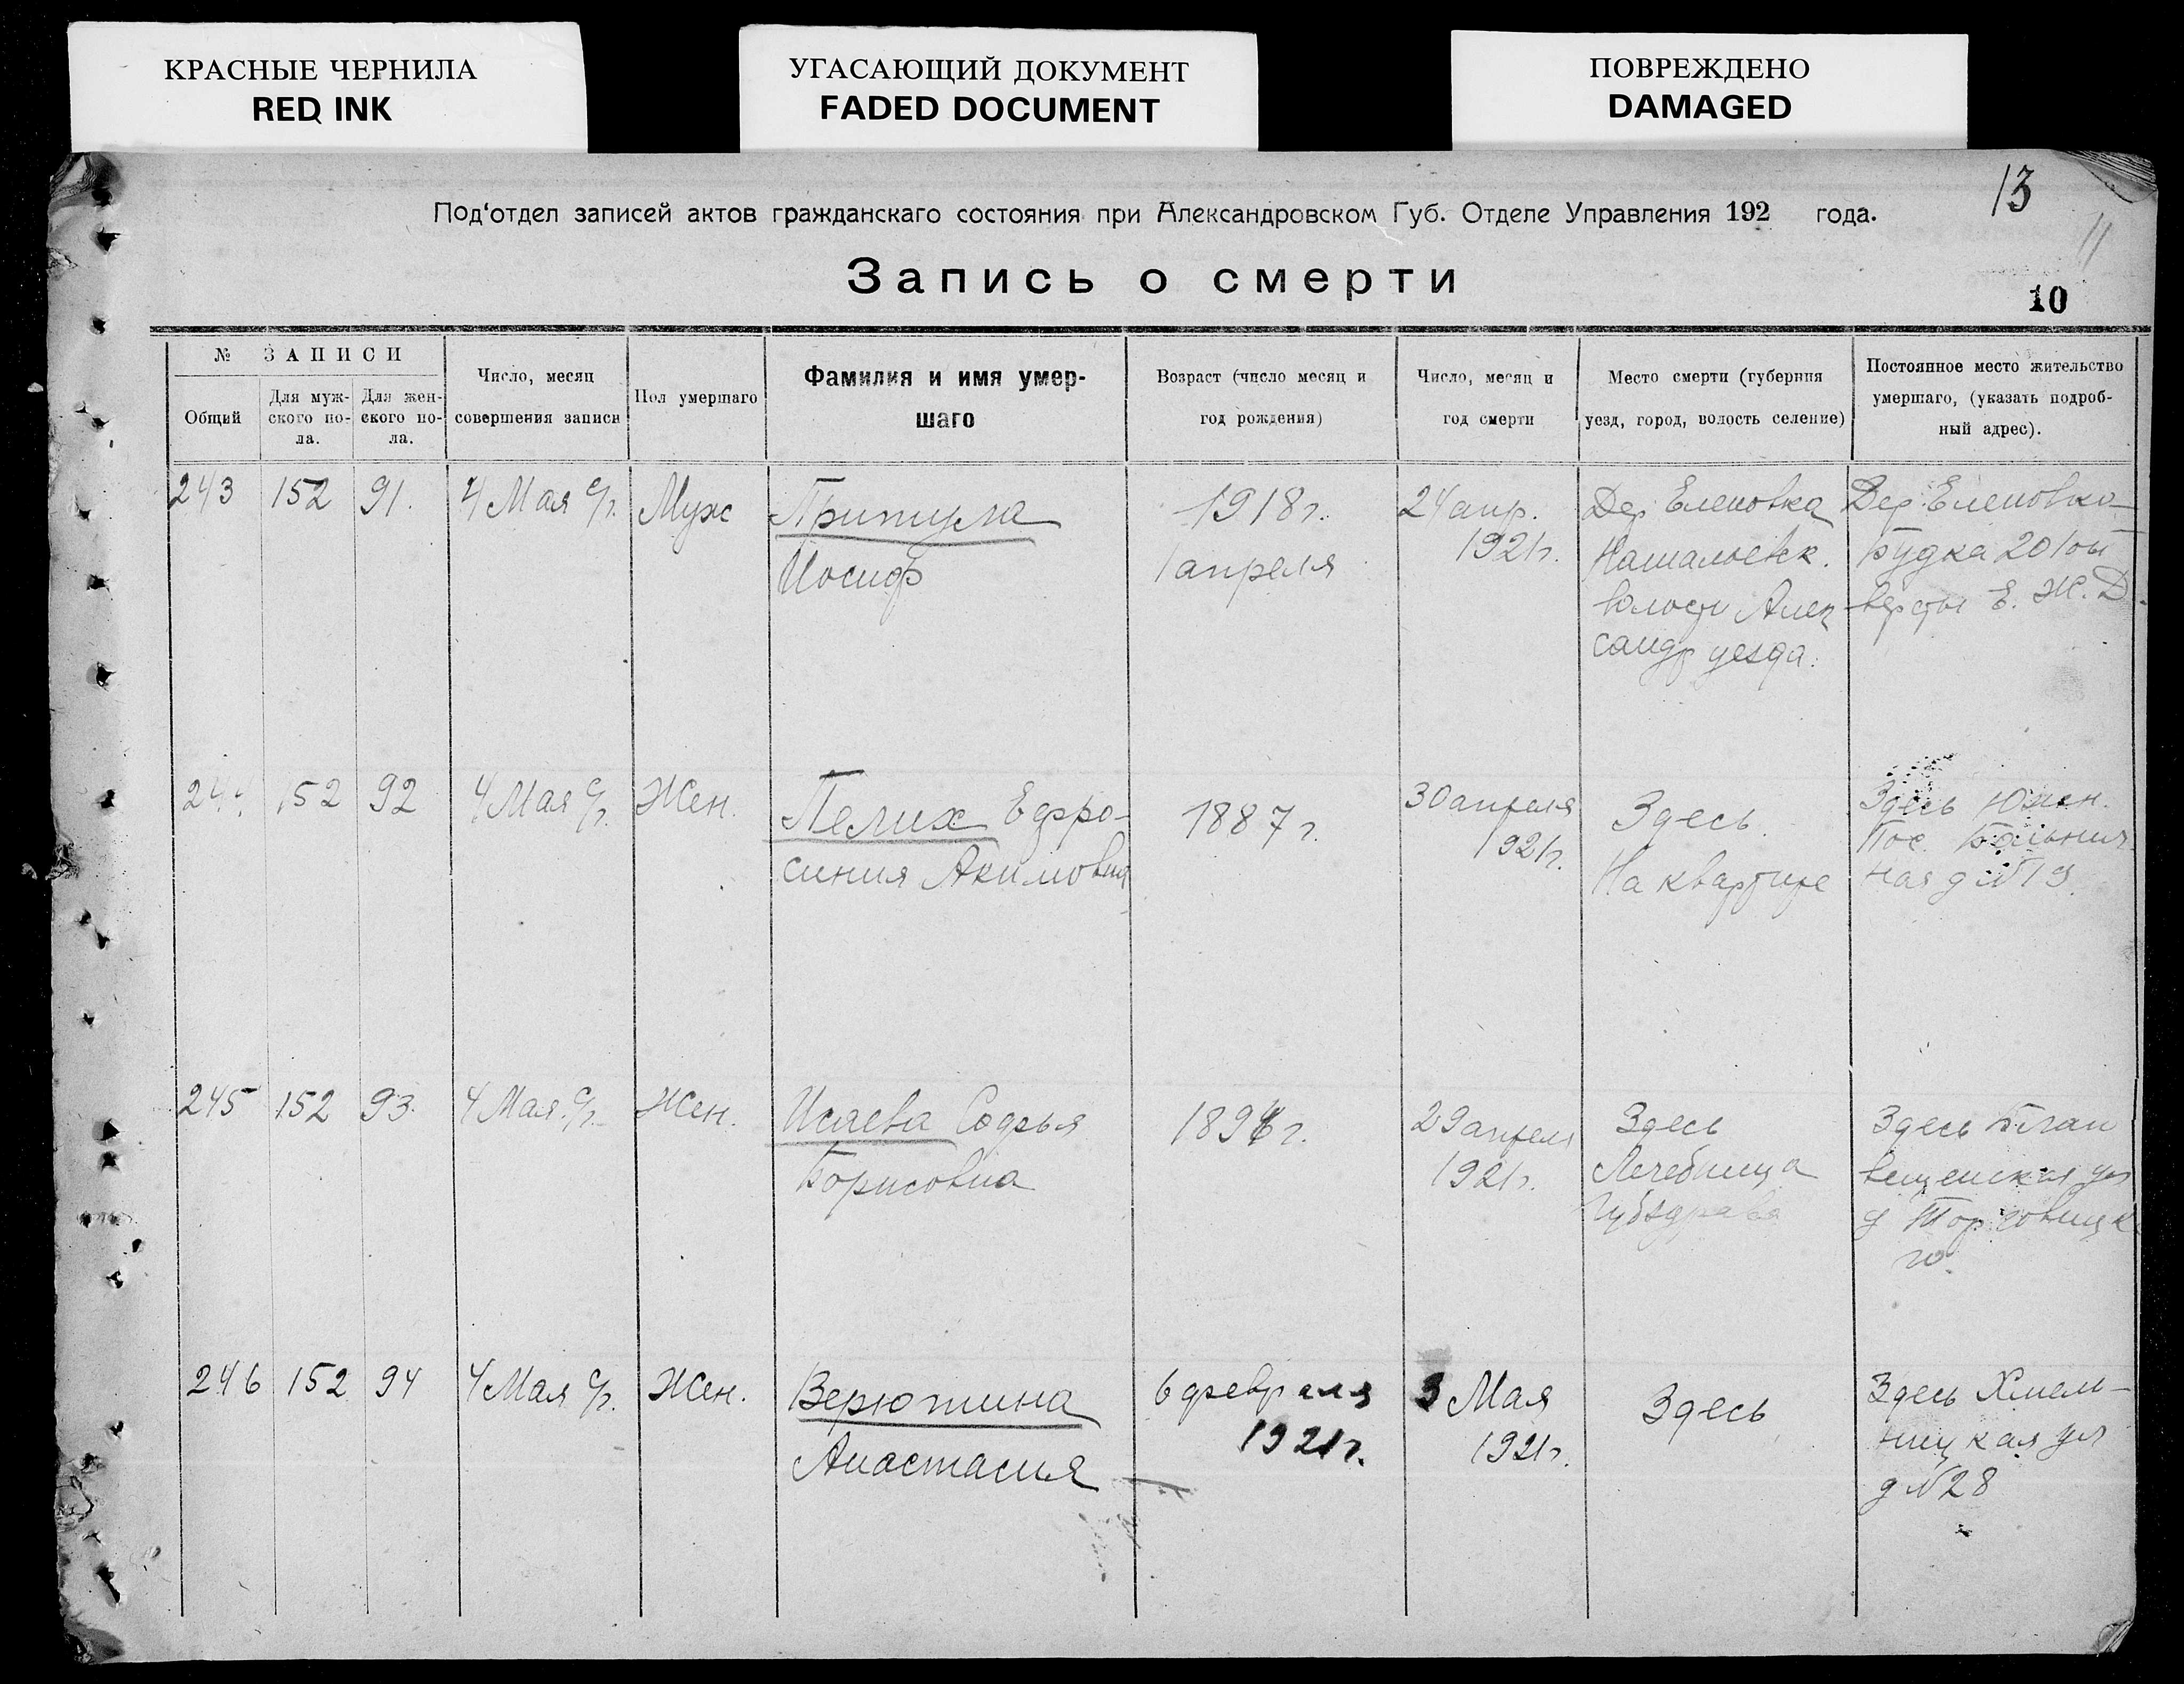 КРАСНЫЕ ЧЕРНИЛА
RED INK
УГАСАЮЩИЙ ДОКУМЕНТ
FADED DOCUMENT
ПОВРЕЖДЕНО
DAMAGED
13
11
Под'отдел записей актов гражданскаго состояния при Александровском Губ. Отделе Управления 192 года.
Запись о смерти
10
№ ЗАПИСИ
Общий
Для муж-
ского по-
ла.
Для жен-
ского по-
ла.
Число, месяц
совершения записи
Пол умершаго
Фамилия и имя умер-
шаго
Возраст (число месяц и
год рождения)
Число, месяц и
год смерти
Место смерти (губерния
уезд, город, волость селение)
Постоянное место жительство
умершаго, (указать подроб-
ный адрес).
243 152 91. 4 Мая с/г. Муж
Притула
Иосиф
1918 г.
1 апреля
24 апр.
1921 г.
Дер Еленовка
волости Алек
сандр уезда.
Дер. Еленовка
будка 201 ой
версты Е. Ж. Д.
244 152 92 4 Мая с/г. Жен.
Пелих Ефро-
синия Акимовна
1887 г.
30 апреля
1921 г.
Здесь
На квартире
Здесь Южн.
Пос. Больнич
ная д №
245 152 93. 4 Мая с/г. Жен.
Исаева Софья
Борисовна
189 г.
29 апреля
1921 г.
Здесь
Лечебница
Губздрава
Здесь Благо
вещенская ул
д
го
246 152 94 4 Мая с/г. Жен.
Верютина
Анастасия
6 февраля
1921 г.
3 Мая
1921 г.
Здесь
Здесь Хмель-
ницкая ул
д №28